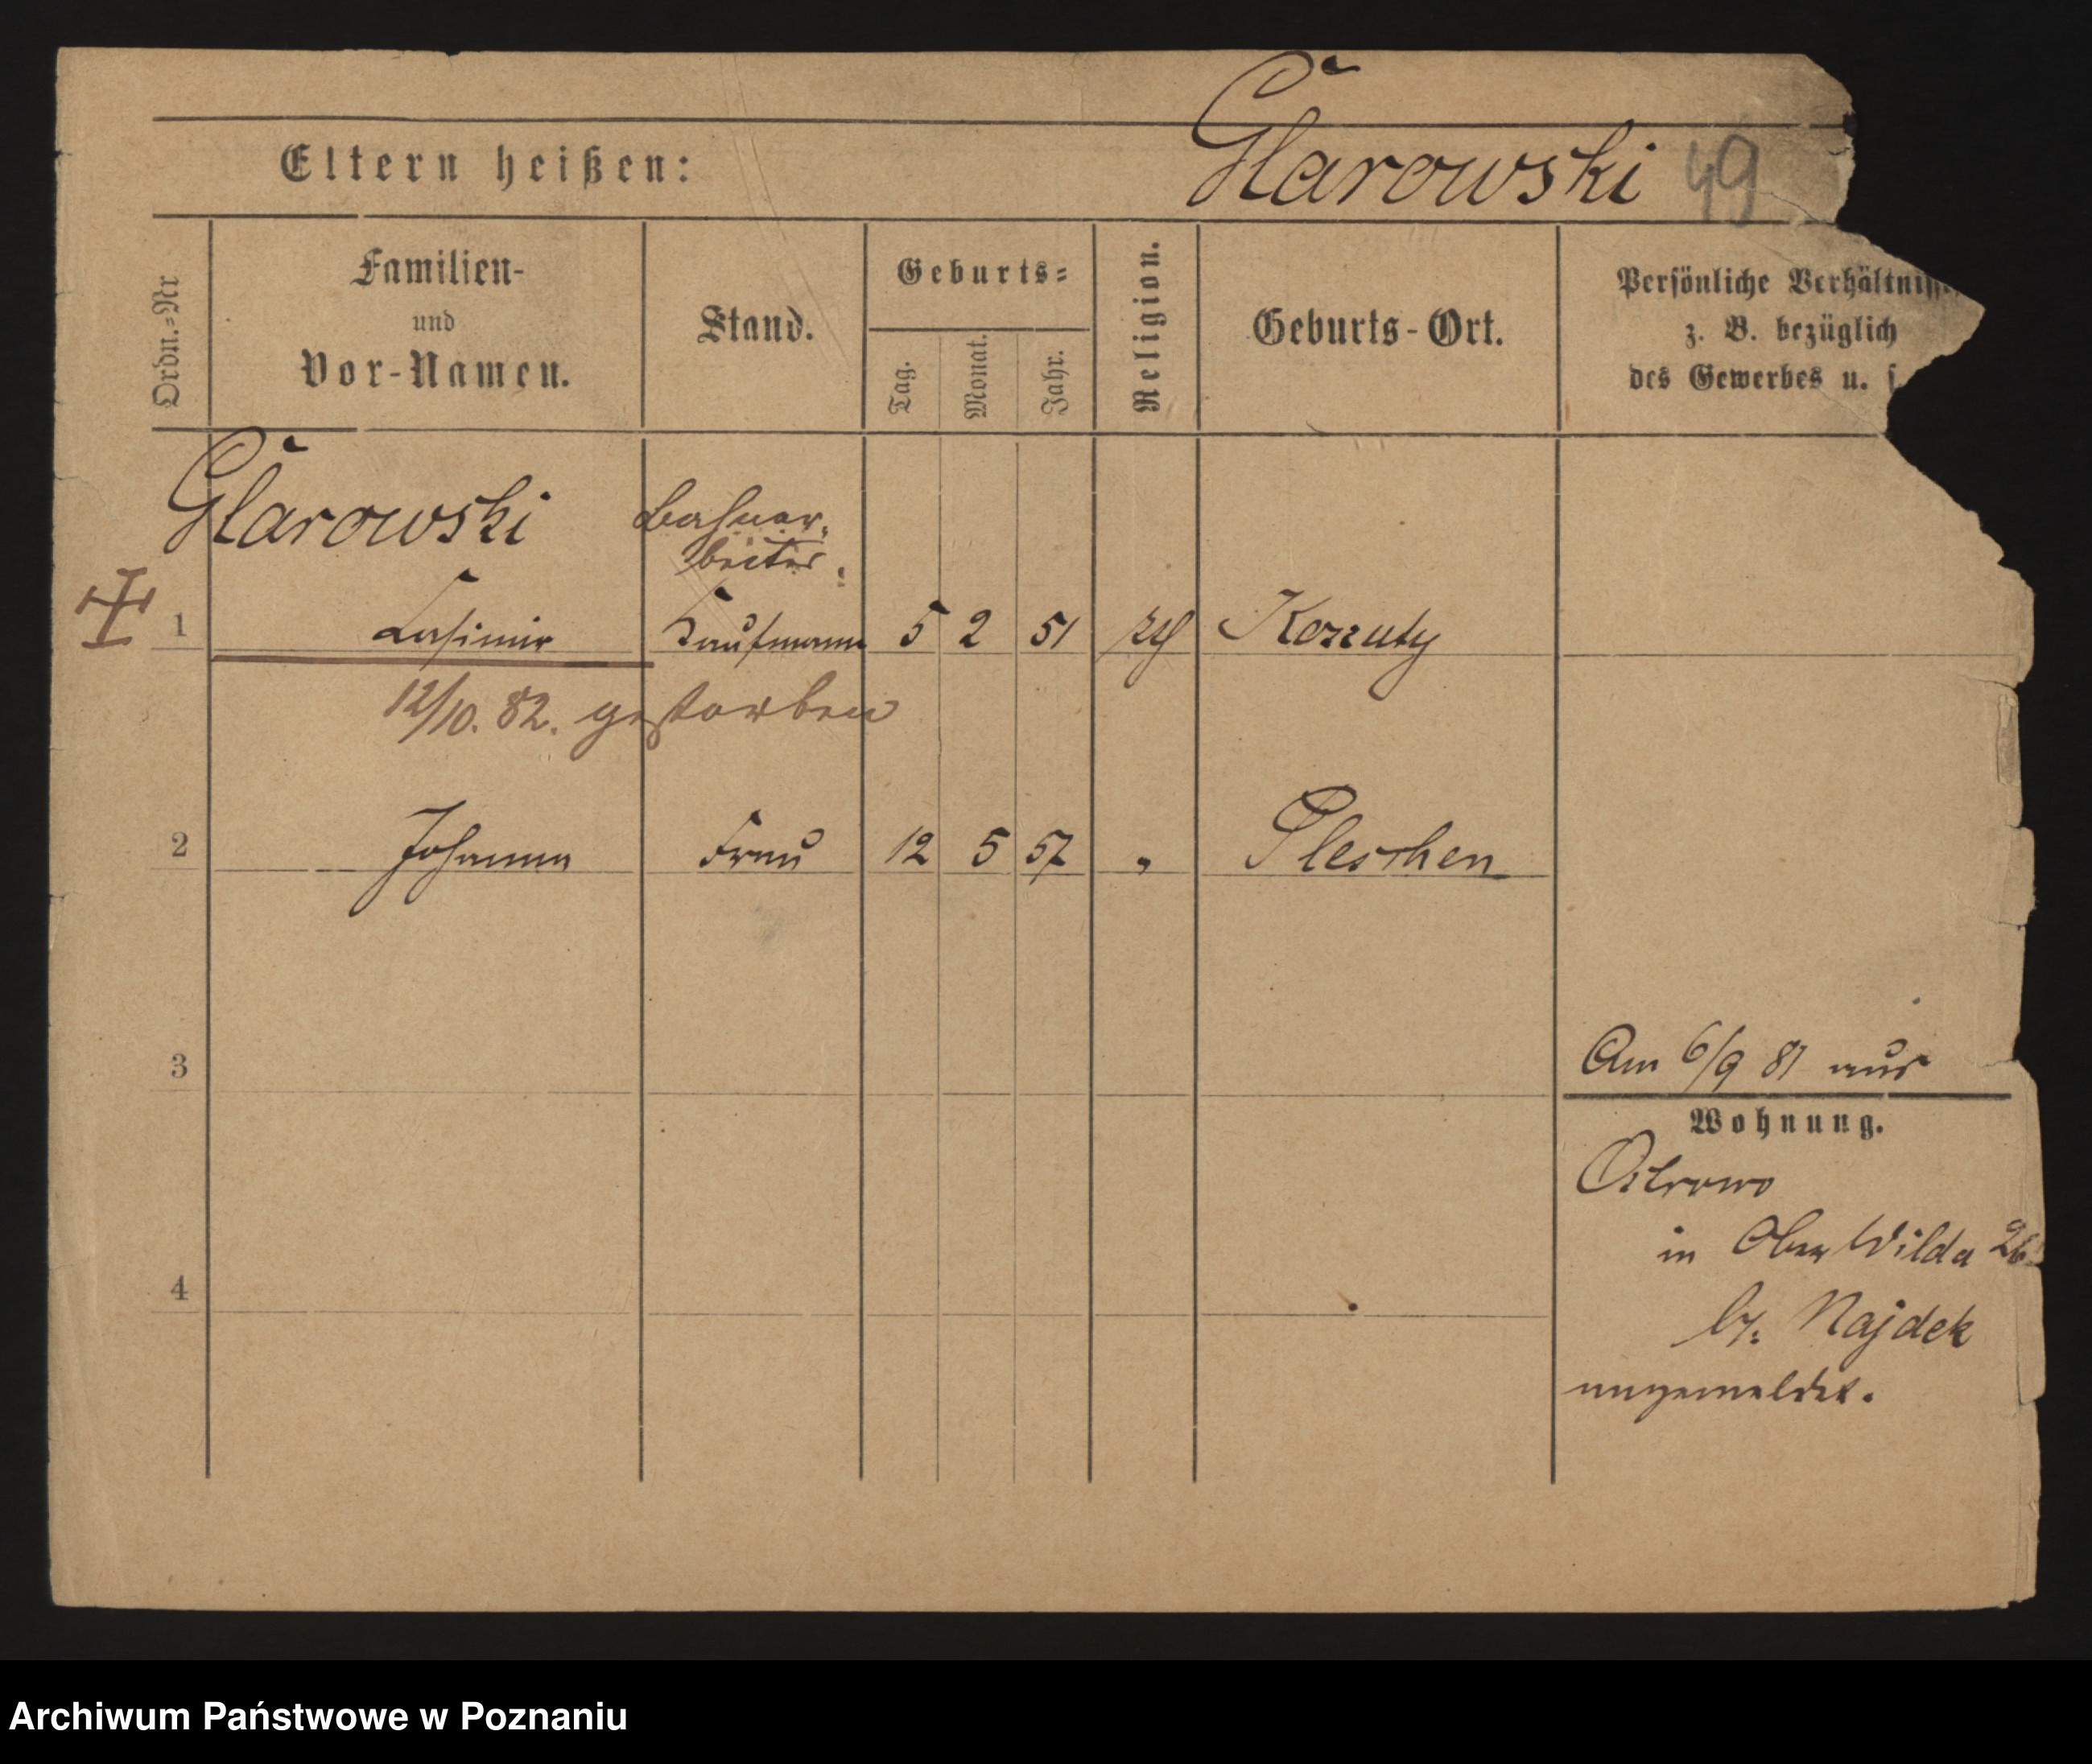 Eltern heißen:
Glarowski 49
Ordn.=Nr
Familien-
und
Vor-Namen.
Stand.
Geburts=
Tag.
Monat.
Jahr.
Religion.
Geburts-Ort.
Persönliche Verhältniss
z. B. bezüglich
des Gewerbes u. s.
Glarowski
Bahnar-
beiter.
1 Casimir Kaufmann 5 2 51 Kozuty
12/10. 82. gestorben
2 Johanna Frau 12 5 57 " Pleschen
3
Am 6/9 81 aus
Wohnung.
Ostrowo
in Ober Wilda 26
4
by. Najdek
angemeldet.
Archiwum Państwowe w Poznaniu